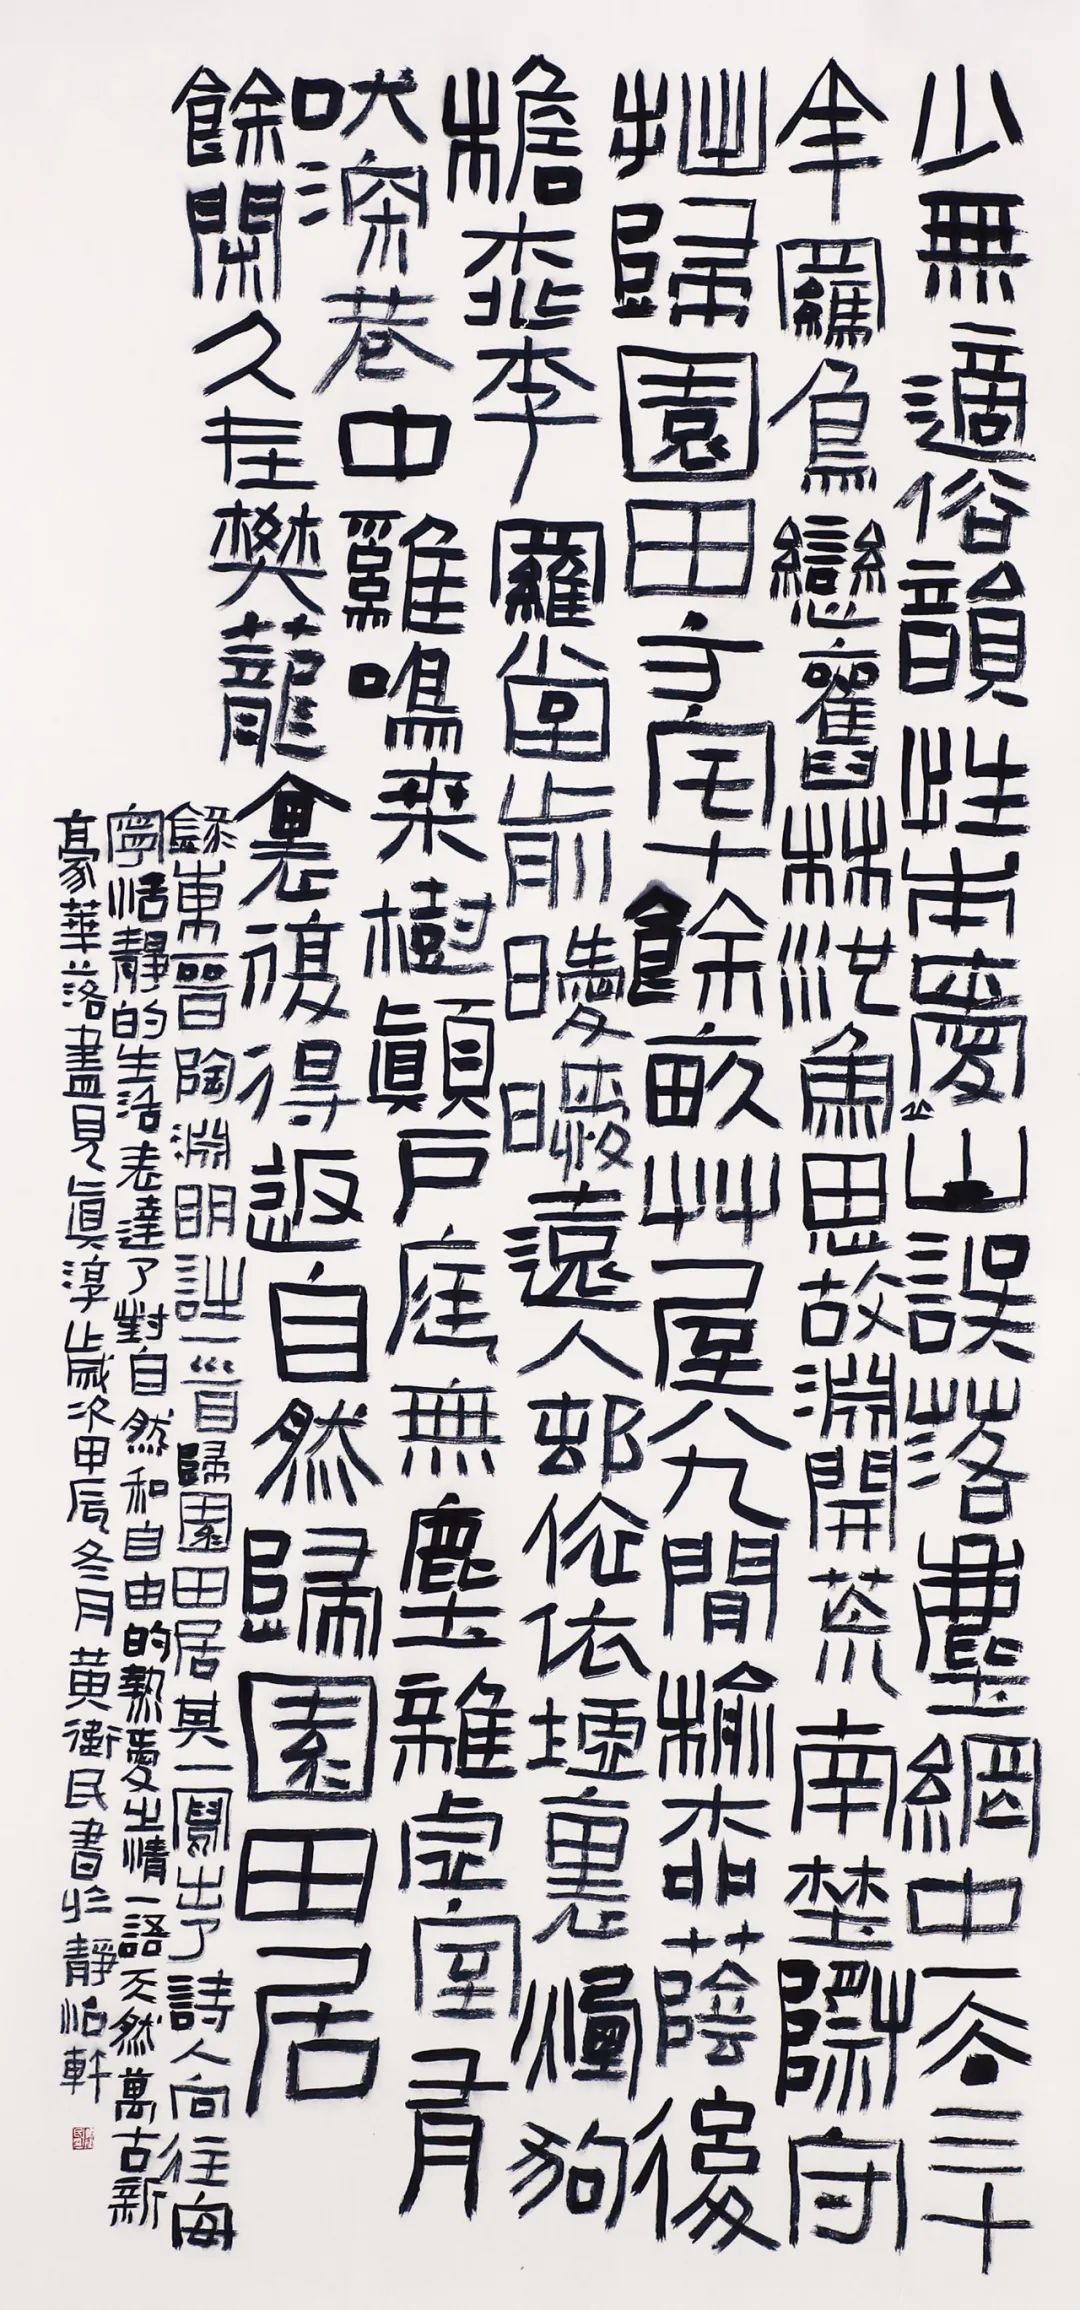 少無適俗韻性本愛丘山誤落塵網中一去三十
年羈鳥戀舊林池魚思故淵開荒南埜際守
拙歸園田方宅十餘畝艸屋八九間榆桺蔭後
檐桃李羅堂前曖曖遠人邨依依墟裏煙狗
吠深巷中雞鳴桑樹顛戶庭無塵雜虛室有
餘閑久在樊蘢裏復得返自然歸園田居
錄東晉陶淵明詩一首歸園田居其一寫出了詩人向往
寧恬靜的生活表達了對自然和自由的熱愛之情一語天然萬古新
豪華落盡見眞淳歲次甲辰冬月黃衛民書於靜泊軒